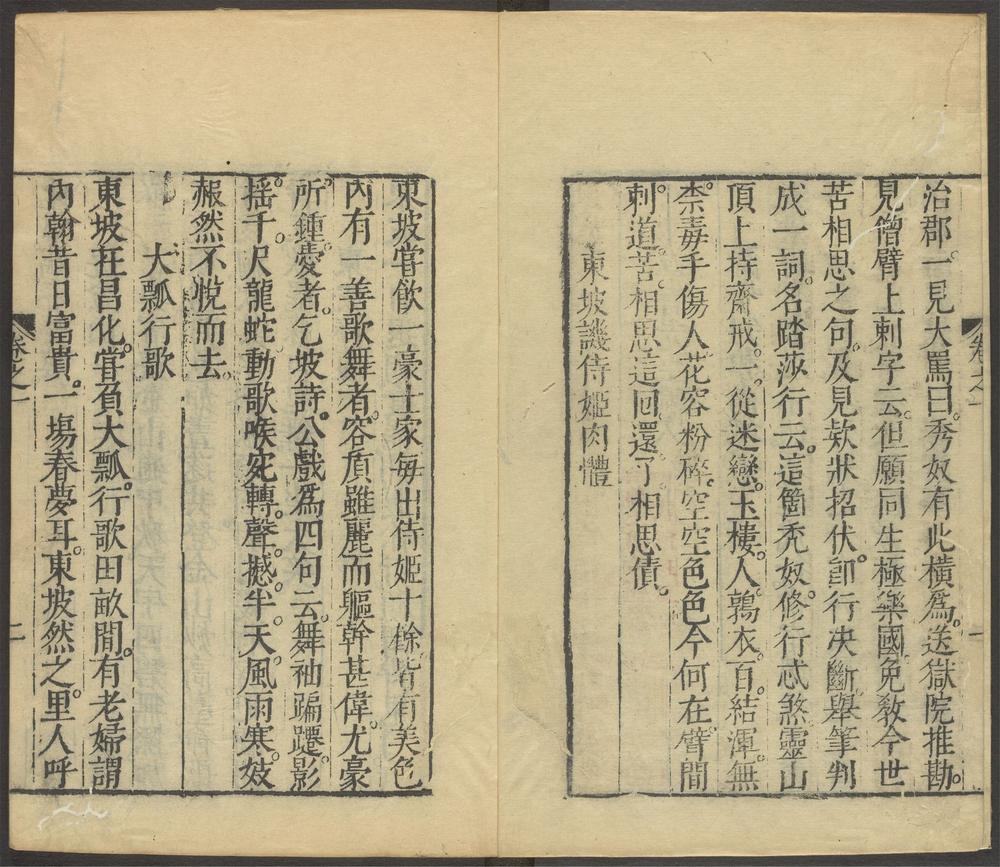 治郡。一見大罵曰。秀奴有此橫爲。送獄院推勘。
見僧臂上刺字云。但願同生極樂國。免教今世
苦相思之句。及見欵狀招伏。卽行決斷。舉筆判
成一詞。名踏莎行云。這箇禿奴。修行忒煞。靈山
頂上持齋戒。一從迷戀玉樓人。鶉衣百結渾無
柰。毒手傷人。花容粉碎。空空色色今何在。臂間
刺道苦相思。這回還了相思債。
東坡譏侍姬肉體
卷之一
一
東坡甞飲一豪士家每出侍姬十餘皆有美色
內有一善歌舞者。容質雖麗而軀幹甚偉。尤豪
所鍾愛者。乞坡詩。公戲爲四句云。舞袖蹁躚。影
搖千尺龍蛇動。歌喉宛轉。聲撼半天風雨寒。妓
赧然不悅而去。
大瓢行歌
東坡在昌化。甞負大瓢。行歌田畝間。有老婦謂
內翰昔日富貴。一塲春夢耳。東坡然之。里人呼
卷之一
二